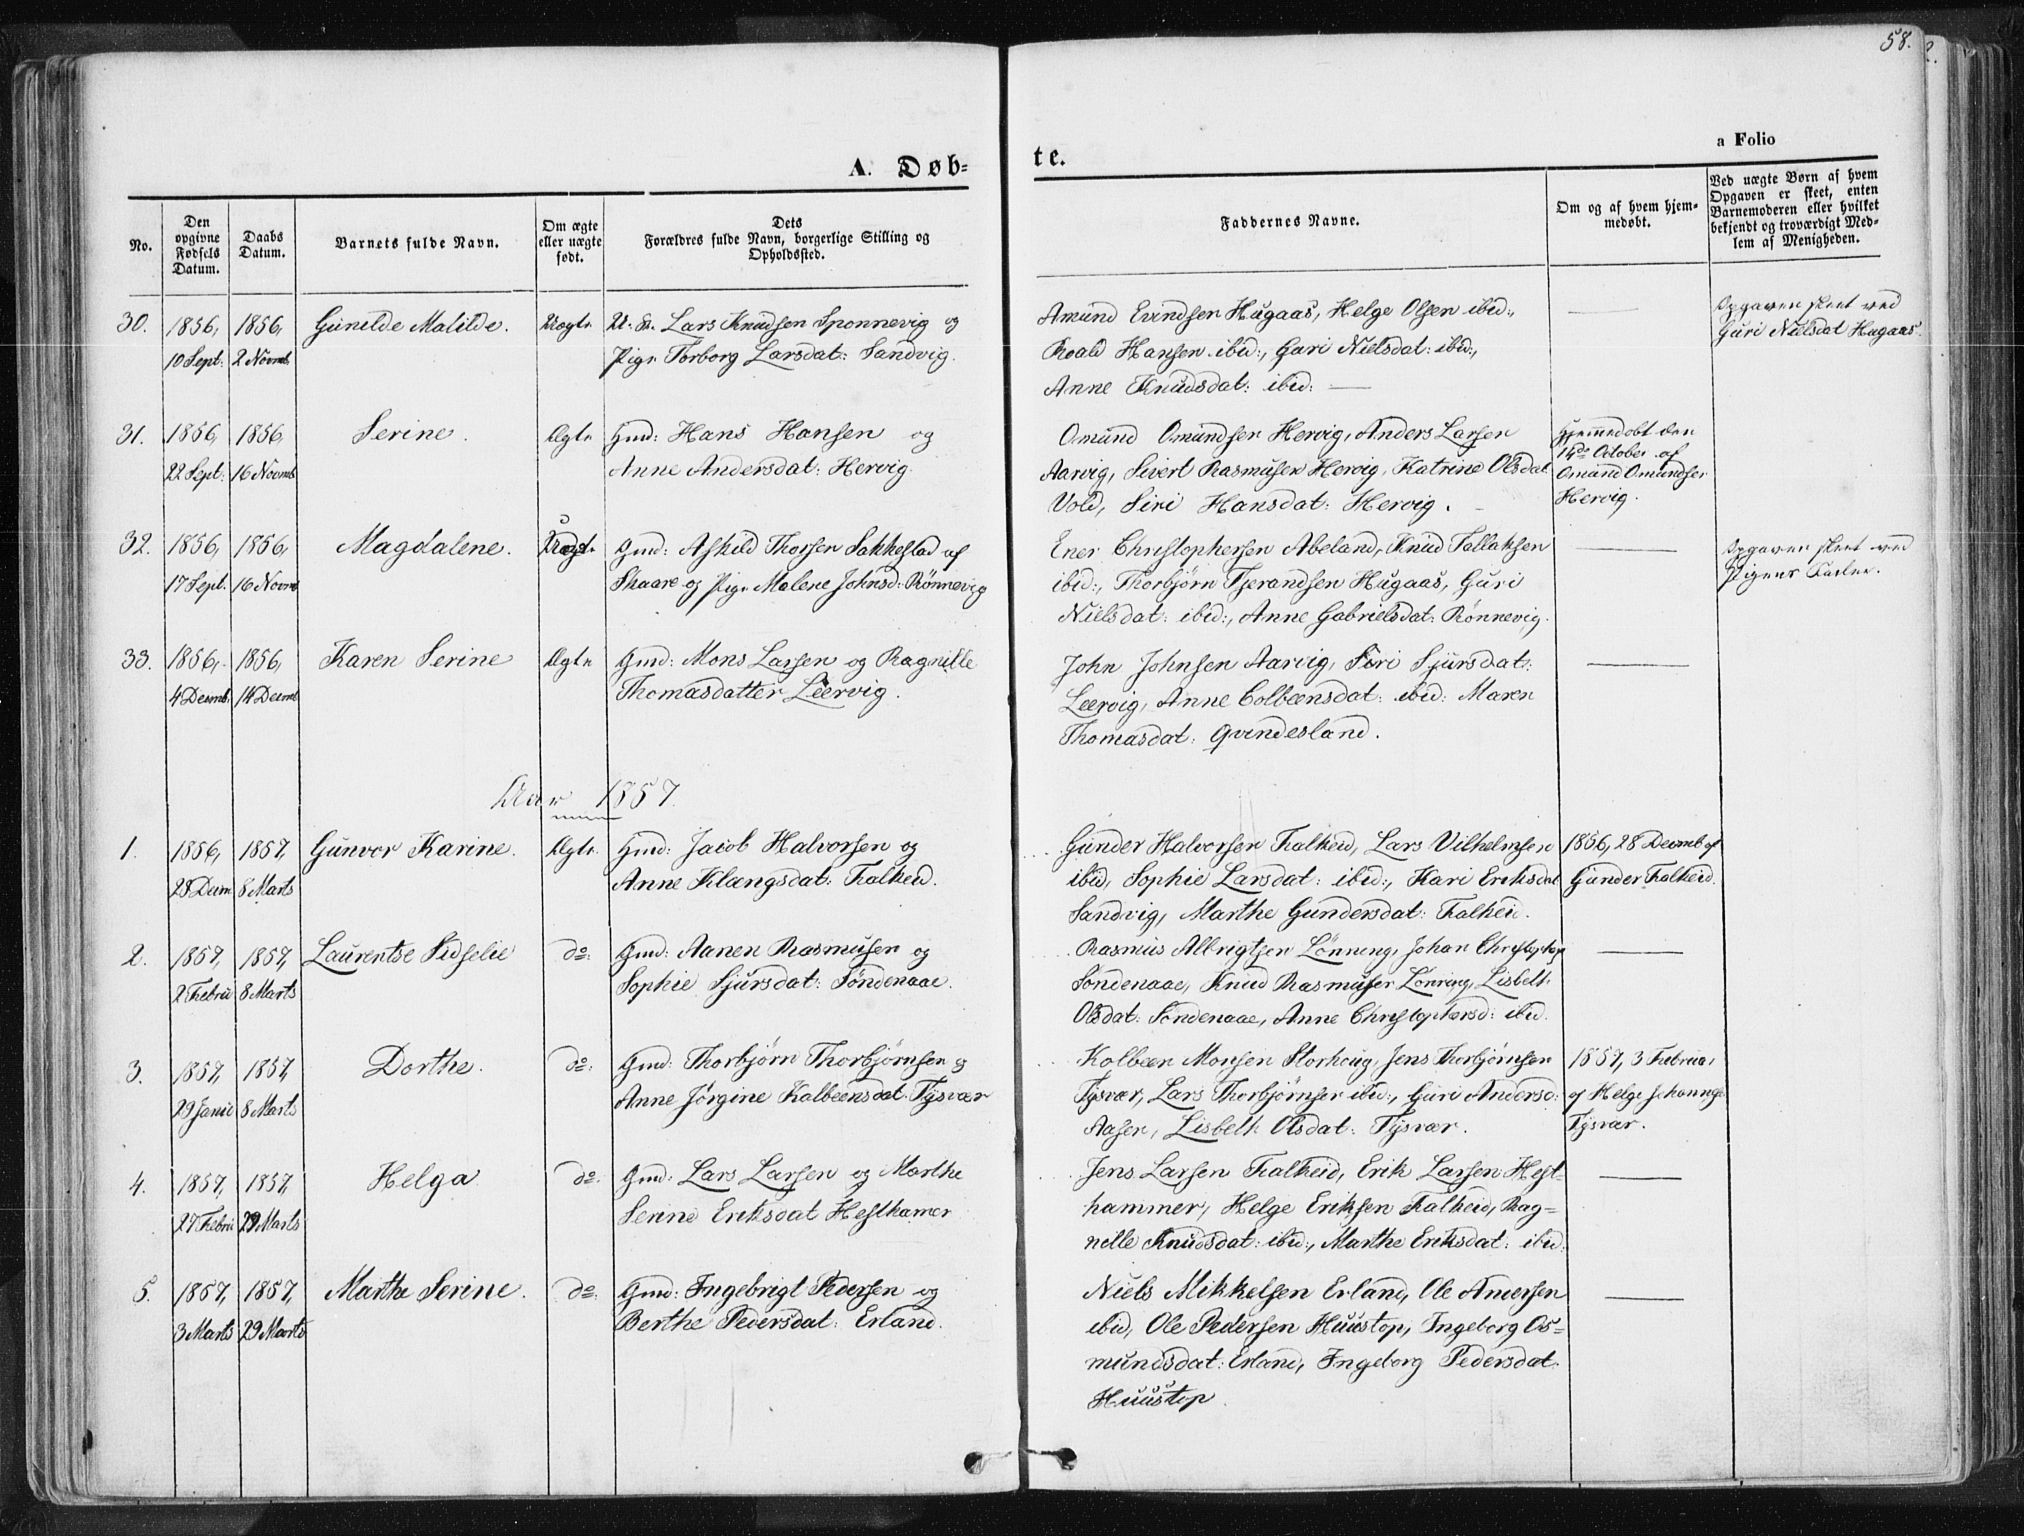 58.
A. Døb-
te.
a Folio
No.
Den opgivne Fødsels Datum.
Daabs Datum.
Barnets fulde Navn.
Om ægte eller uægte født.
Dets Forældres fulde Navn, borgerlige Stilling og Opholdssted.
Faddernes Navne.
Om og af hvem hjemmedøbt.
Ved uægte Børn af hvem Opgaven er skeet, enten Barnemoderen eller hvilket bekjendt og troværdigt Medlem af Menigheden.
30. 1856, 1856, Gunilde Malilde. Uægte U. K. Lars Knudsen Sponnevig og
10 Sept: 2 Novmb. Pige Torborg Larsdat: Sandvig.
Amund Evindsen Hugaas, Helge Olsen ibid:,
Roald Hansen ibid:, Guri Nielsdat: ibid:,
Anne Knudsdat: ibid: —
Opgaven skeet ved
Guri Nielsdat Hugaas.
31. 1856, 1856, Serine. Ægte Gmd: Hans Hansen og
22 Sept: 16 Novmb Anne Andersdat: Hervig.
Omund Omundsen Hervig, Anders Larsen
Aarvig, Sivert Rasmusen Hervig, Katrine Olsdat
Vold, Siri Hansdat: Hervig.
Hjemmedøbt den
14de October af
Omund Omundsen
Hervig.
32. 1856, 1856, Magdalene. Uægte Gmd: Askild Thorsen Sakkestad af
17 Sept. 16 Novmb Skaare og Pige Malene Johnsd: Rønnevig
Ener Christophersen Abeland, Knud Tollaksen
ibid:, Thorbjørn Tjerandsen Hugaas, Guri
Nielsdat: ibid:, Anne Gabrielsdat: Rønnevig.
Opgaven skeet ved
Pigens Fader.
33. 1856, 1856, Karen Serine Ægte Gmd: Mons Larsen og Ragnille
4 Decmb. 14 Decmb Thomasdatter Leervig.
John Johnsen Aarvig, Siri Sjursdat:
Leervig, Anne Colbeensdat: ibid: Maren
Thomasdat: Qvindesland.
Aar 1857.
1. 1856, 1857, Gunvor Karine. Ægte. Gmd: Jacob Halvorsen og
28 Decm 8 Marts Anne Klængsdat: Falkeid.
Gunder Halvorsen Falkeid, Lars Vilhelmsen
ibid, Sophie Larsdat: ibid:, Kari Eriksdat
Sandvig, Marthe Gundersdat: Falkeid.
1856, 28 Decmb af
Gunder Falkeid.
2. 1857, 1857, Laurentse Sidselie do: Gmd: Aanen Rasmusen og
2 Febru 8 Marts Sophie Sjursdat: Søndenaae.
Rasmus Albrigtsen Lønning, Johan Christophe
Søndenaae, Knud Rasmusen Lønning, Lisbeth
Olsdat: Søndenaae, Anne Christophersd: ibid.
3. 1857, 1857, Dorthe. do: Gmd: Thorbjørn Thorbjørnsen og
29 Janu 8 Marts Anne Jørgine Kalbeensdat: Tysvær
Kolbeen Monsen Storhoug, Jens Thorbjørnsen
Tysvær, Lars Thorbjørnsen ibid:, Guri Andersd:
Aasen, Lisbeth Olsdat: Tysvær.
1857, 3 Februar
af Helge Johannes
Tysvær.
4. 1857, 1857, Helga do. Gmd: Lars Larsen og Marthe
27 Febru 29 Marts Serine Eriksdat Hesthamer
Jens Larsen Falkeid, Erik Larsen Hest-
hammer, Helge Eriksen Falkeid, Rag-
nelle Knudsdat: ibid:, Marthe Eriksdat: ibid:
5. 1857, 1857, Marthe Serine. do: Gmd: Ingebrigt Pedersen og
3 Marts 29 Marts Berthe Pedersdat: Erland.
Niels Mikkelsen Erland, Ole Andersen
ibid, Ole Pedersen Huustop, Ingeborg Os-
mundsdat: Erland, Ingeborg Pedersdat.
Huustop.